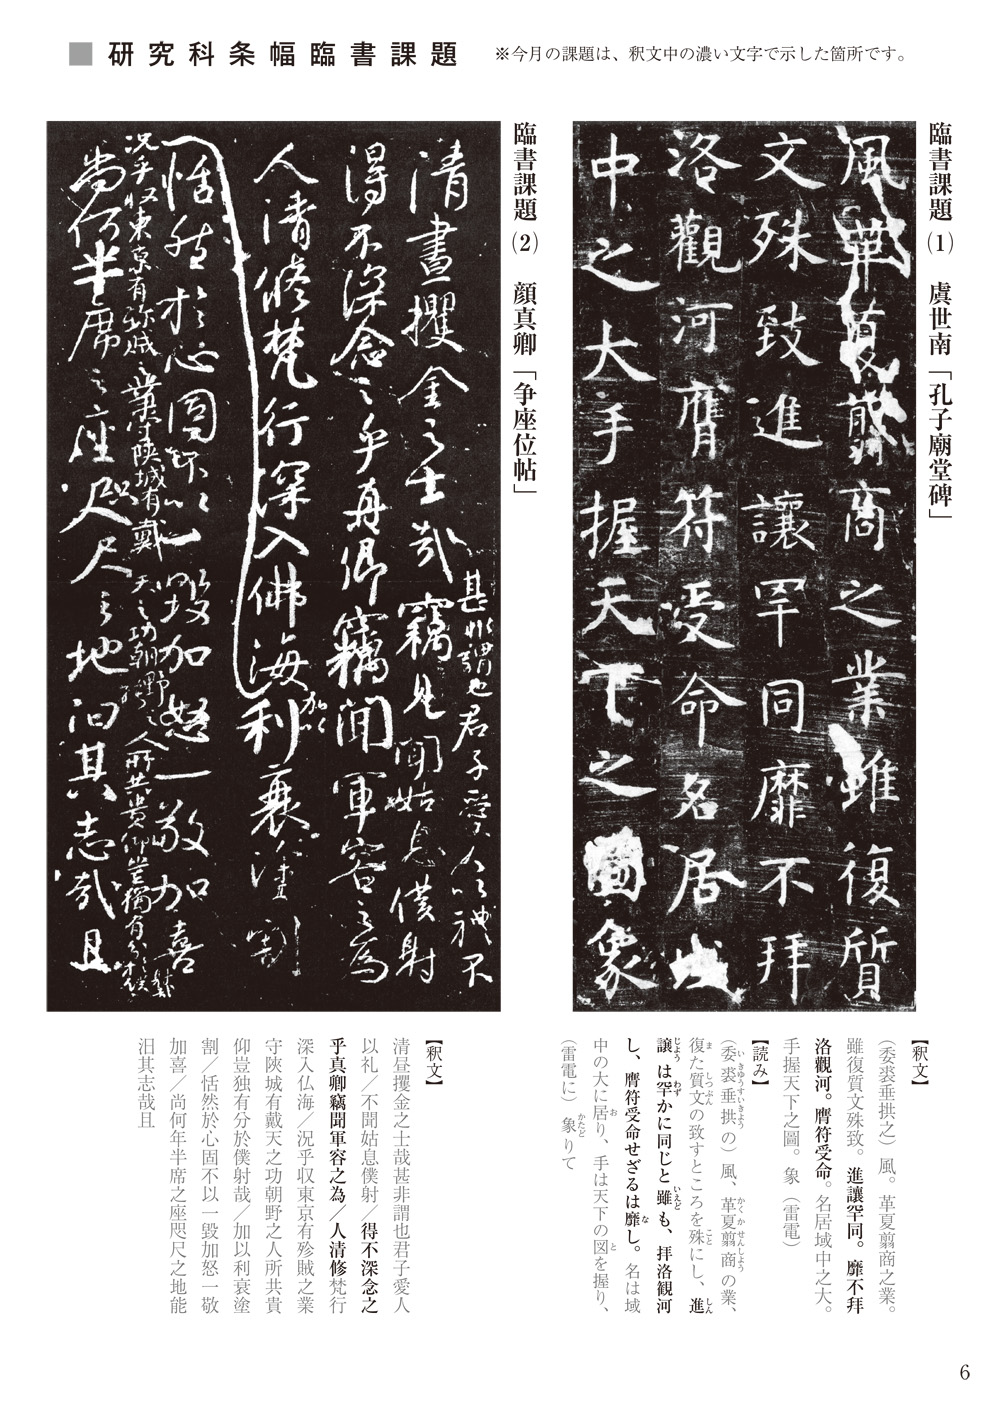 研究科条幅臨書課題
※今月の課題は、釈文中の濃い文字で示した箇所です。
臨書課題(1) 虞世南「孔子廟堂碑」
風革夏翦商之業雖復質
文殊致進讓罕同靡不拜
洛觀河膺符受命名居域
中之大手握天下之圖象
【釈文】
(委裘垂拱之)風。革夏翦商之業。
雖復質文殊致。進讓罕同。靡不拜
洛觀河。膺符受命。名居域中之大。
手握天下之圖。象(雷電)
【読み】
いきゅうすいきょう かくかせんしょう
(委裘垂拱の)風、革夏翦商の業、
ま しつぶん こと しん
復た質文の致すところを殊にし、進
じょう わず いえど
譲は罕かに同じと雖も、拝洛観河
な
し、膺符受命せざるは靡し。名は域
お と
中の大に居り、手は天下の図を握り、
かたど
(雷電に)象りて
臨書課題(2) 顔真卿「争座位帖」
甚非謂也君子愛人以禮不
清晝攫金之士哉竊見聞姑息僕射
得不深念之乎真卿竊聞軍容之為
人清修梵行深入佛海加以利衰塗割
恬然於心固不以一毀加怒一敬加喜
況乎収東京有殄賊之業守陝城有戴天之功朝野之人所共貴仰豈獨有分於僕射哉
尚何半席之座咫尺之地汩其志哉且
【釈文】
清昼攫金之士哉甚非謂也君子愛人
以礼／不聞姑息僕射／得不深念之
乎真卿竊聞軍容之為／人清修梵行
深入仏海／況乎収東京有殄賊之業
守陝城有戴天之功朝野之人所共貴
仰豈独有分於僕射哉／加以利衰塗
割／恬然於心固不以一毀加怒一敬
加喜／尚何年半席之座咫尺之地能
汩其志哉且
6